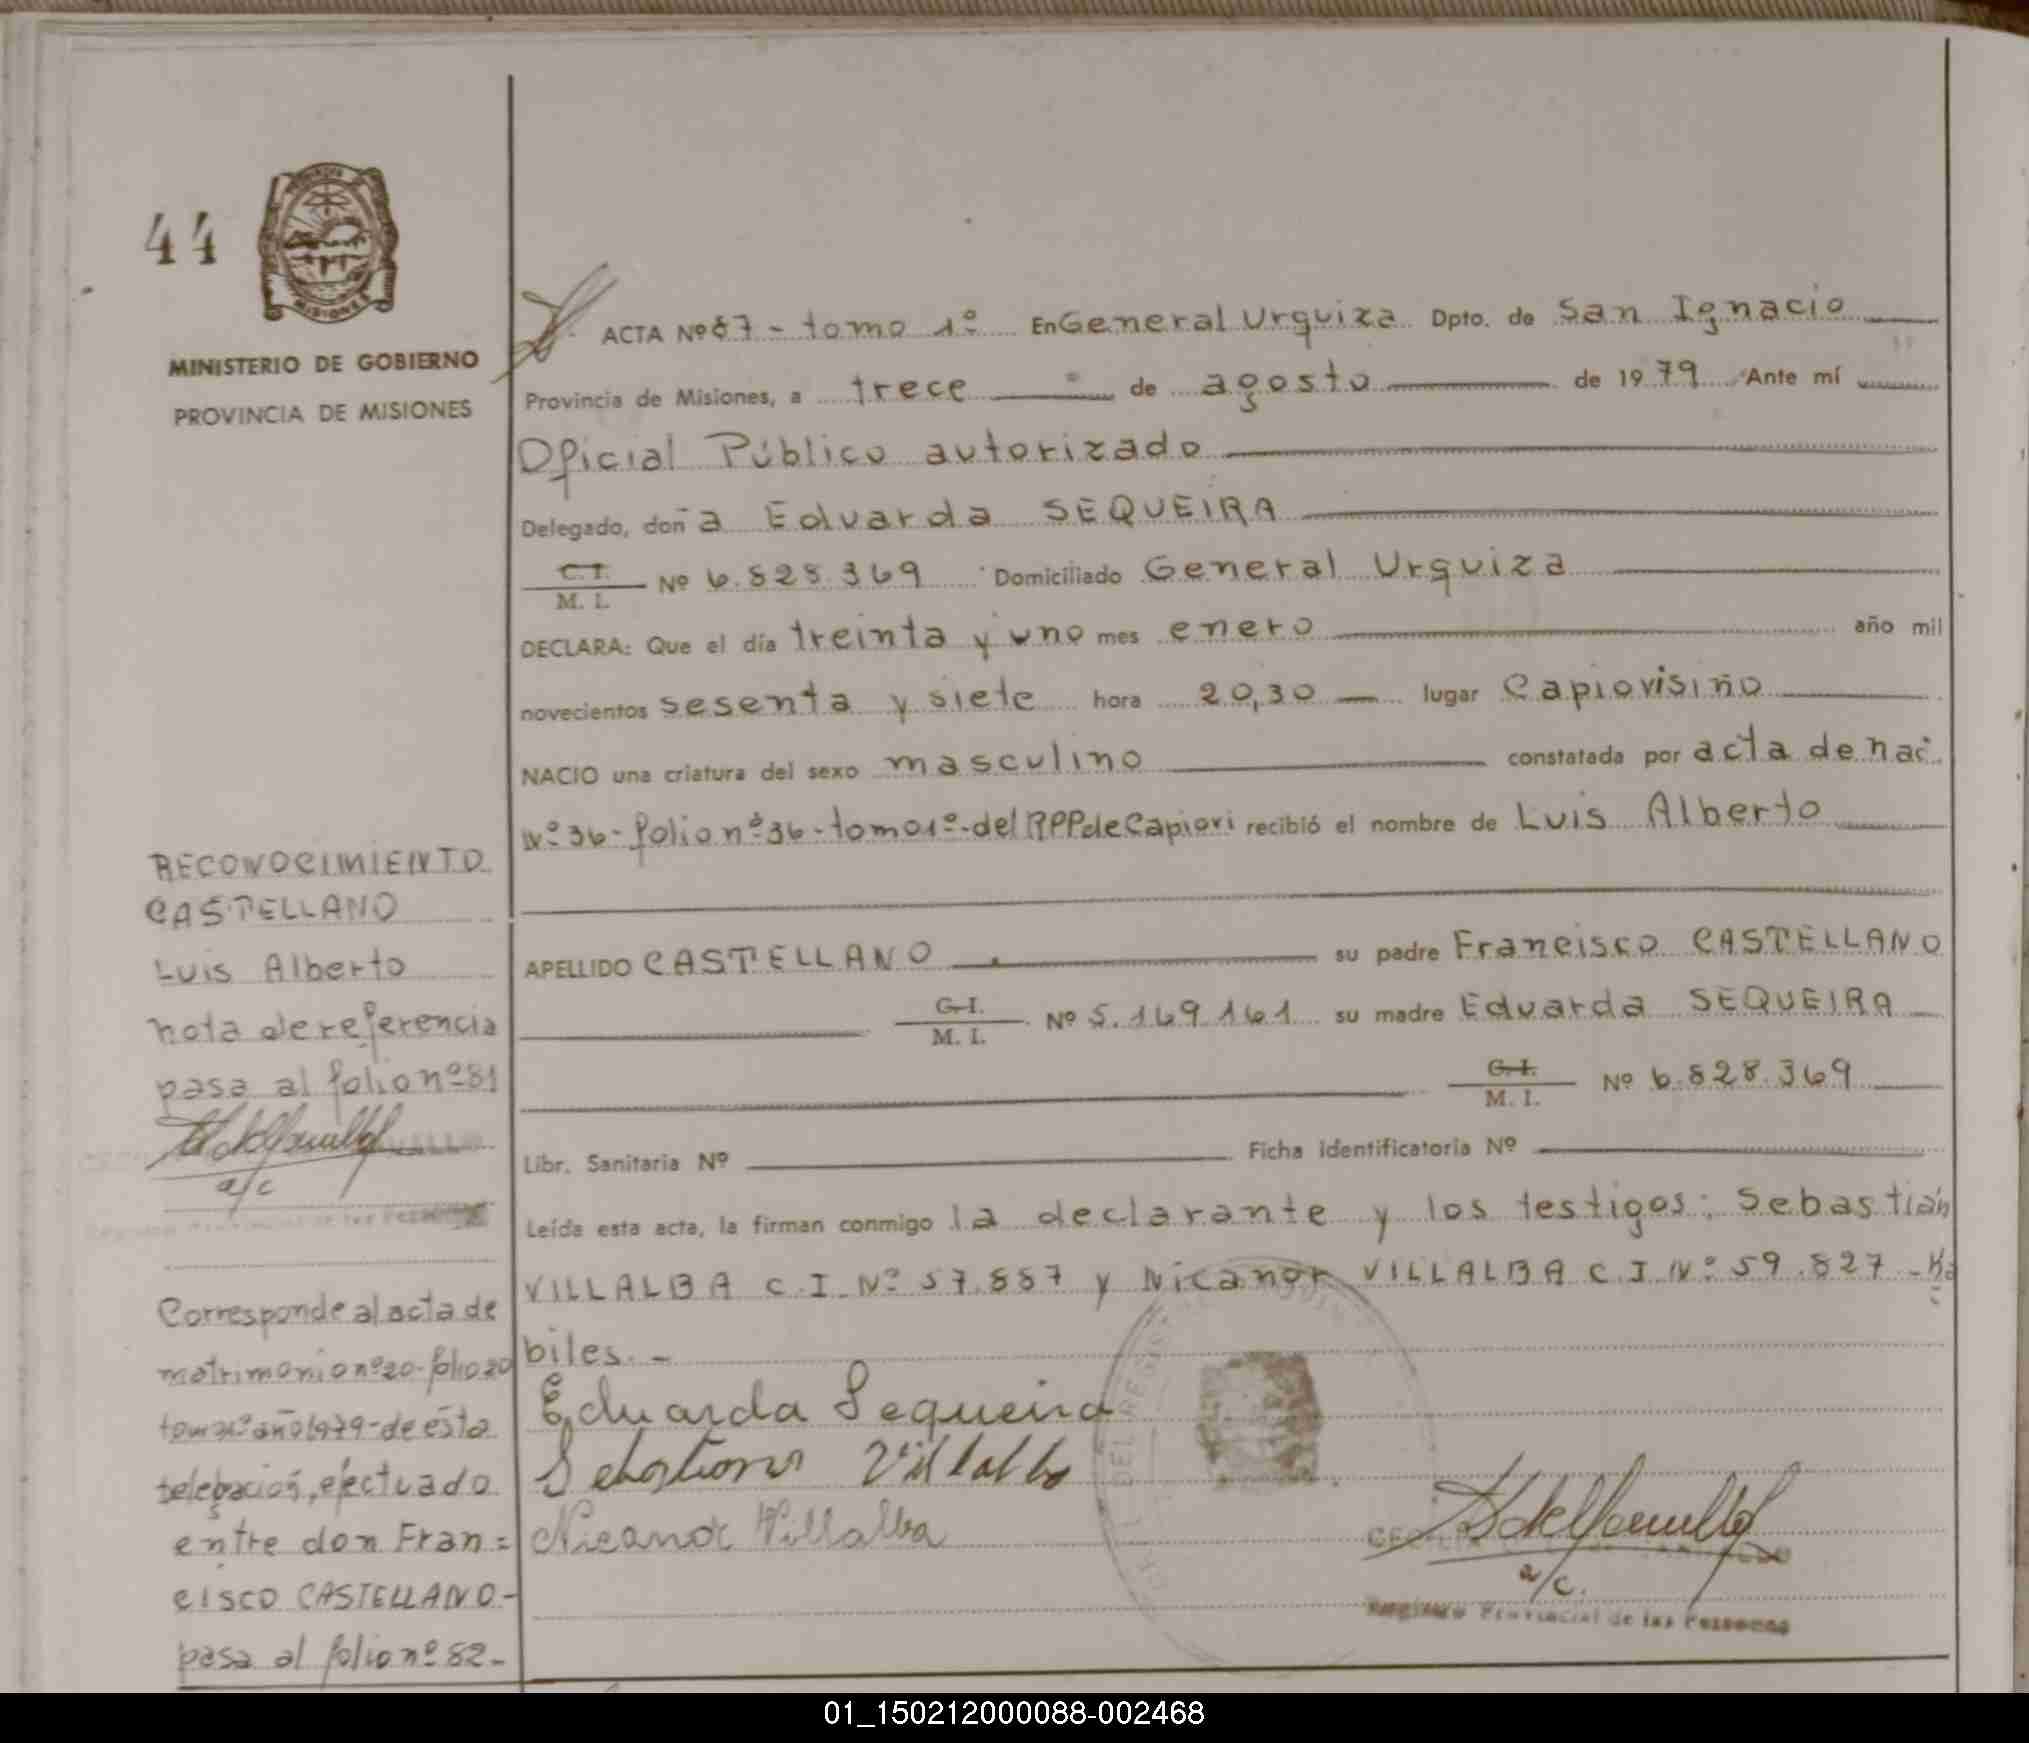 44
MISIONES
MINISTERIO DE GOBIERNO
PROVINCIA DE MISIONES
RECONOCIMIENTO
CASTELLANO
Luis Alberto
nota de referencia
pasa al folio nº 81
a/c
Corresponde al acta de
matrimonio nº 20-folio 20
año 1979-de esta
efectuado
entre don Fran=
cisco CASTELLANO-
pasa al folio nº 82-
ACTA Nº 87 - tomo 1º En General Urquiza Dpto. de San Ignacio
Provincia de Misiones, a trece de agosto de 1979 Ante mí
Oficial Público autorizado
Delegado, doña Eduarda SEQUEIRA
C.I.
M. I. Nº 6.828.369 Domiciliado General Urquiza
DECLARA: Que el día treinta y uno mes enero año mil
novecientos sesenta y siete hora 20,30 lugar Capiovisiño
NACIO una criatura del sexo masculino constatada por acta de nac.
Nº 36-folio nº 36-tomo 1º-del RPP de Capiovi recibió el nombre de Luis Alberto
APELLIDO CASTELLANO su padre Francisco CASTELLANO
C.I.
M. I. Nº 5.169.161 su madre Eduarda SEQUEIRA
C.I.
M. I. Nº 6.828.369
Libr. Sanitaria Nº Ficha identificatoria Nº
Leída esta acta, la firman conmigo la declarante y los testigos: Sebastián
VILLALBA C.I. Nº 57.887 y Nicanor VILLALBA C.I. Nº 59.827 - Há
biles. -
Eduarda Sequeira
Sebastian Villalba
Nicanor Villalba
a/c.
Registro Provincial de las Personas
01_150212000088-002468